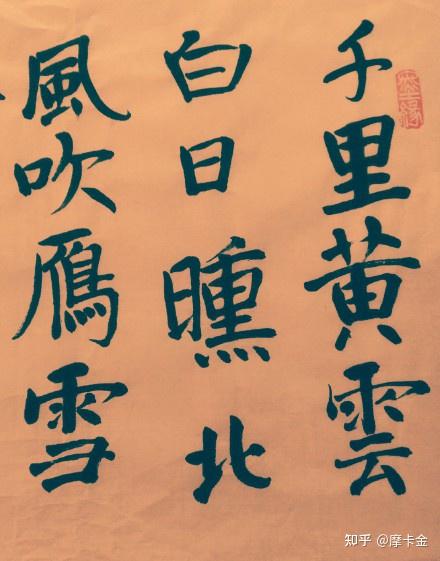 千里黄雲
白日曛北
風吹鴈雪
知乎 @摩卡金